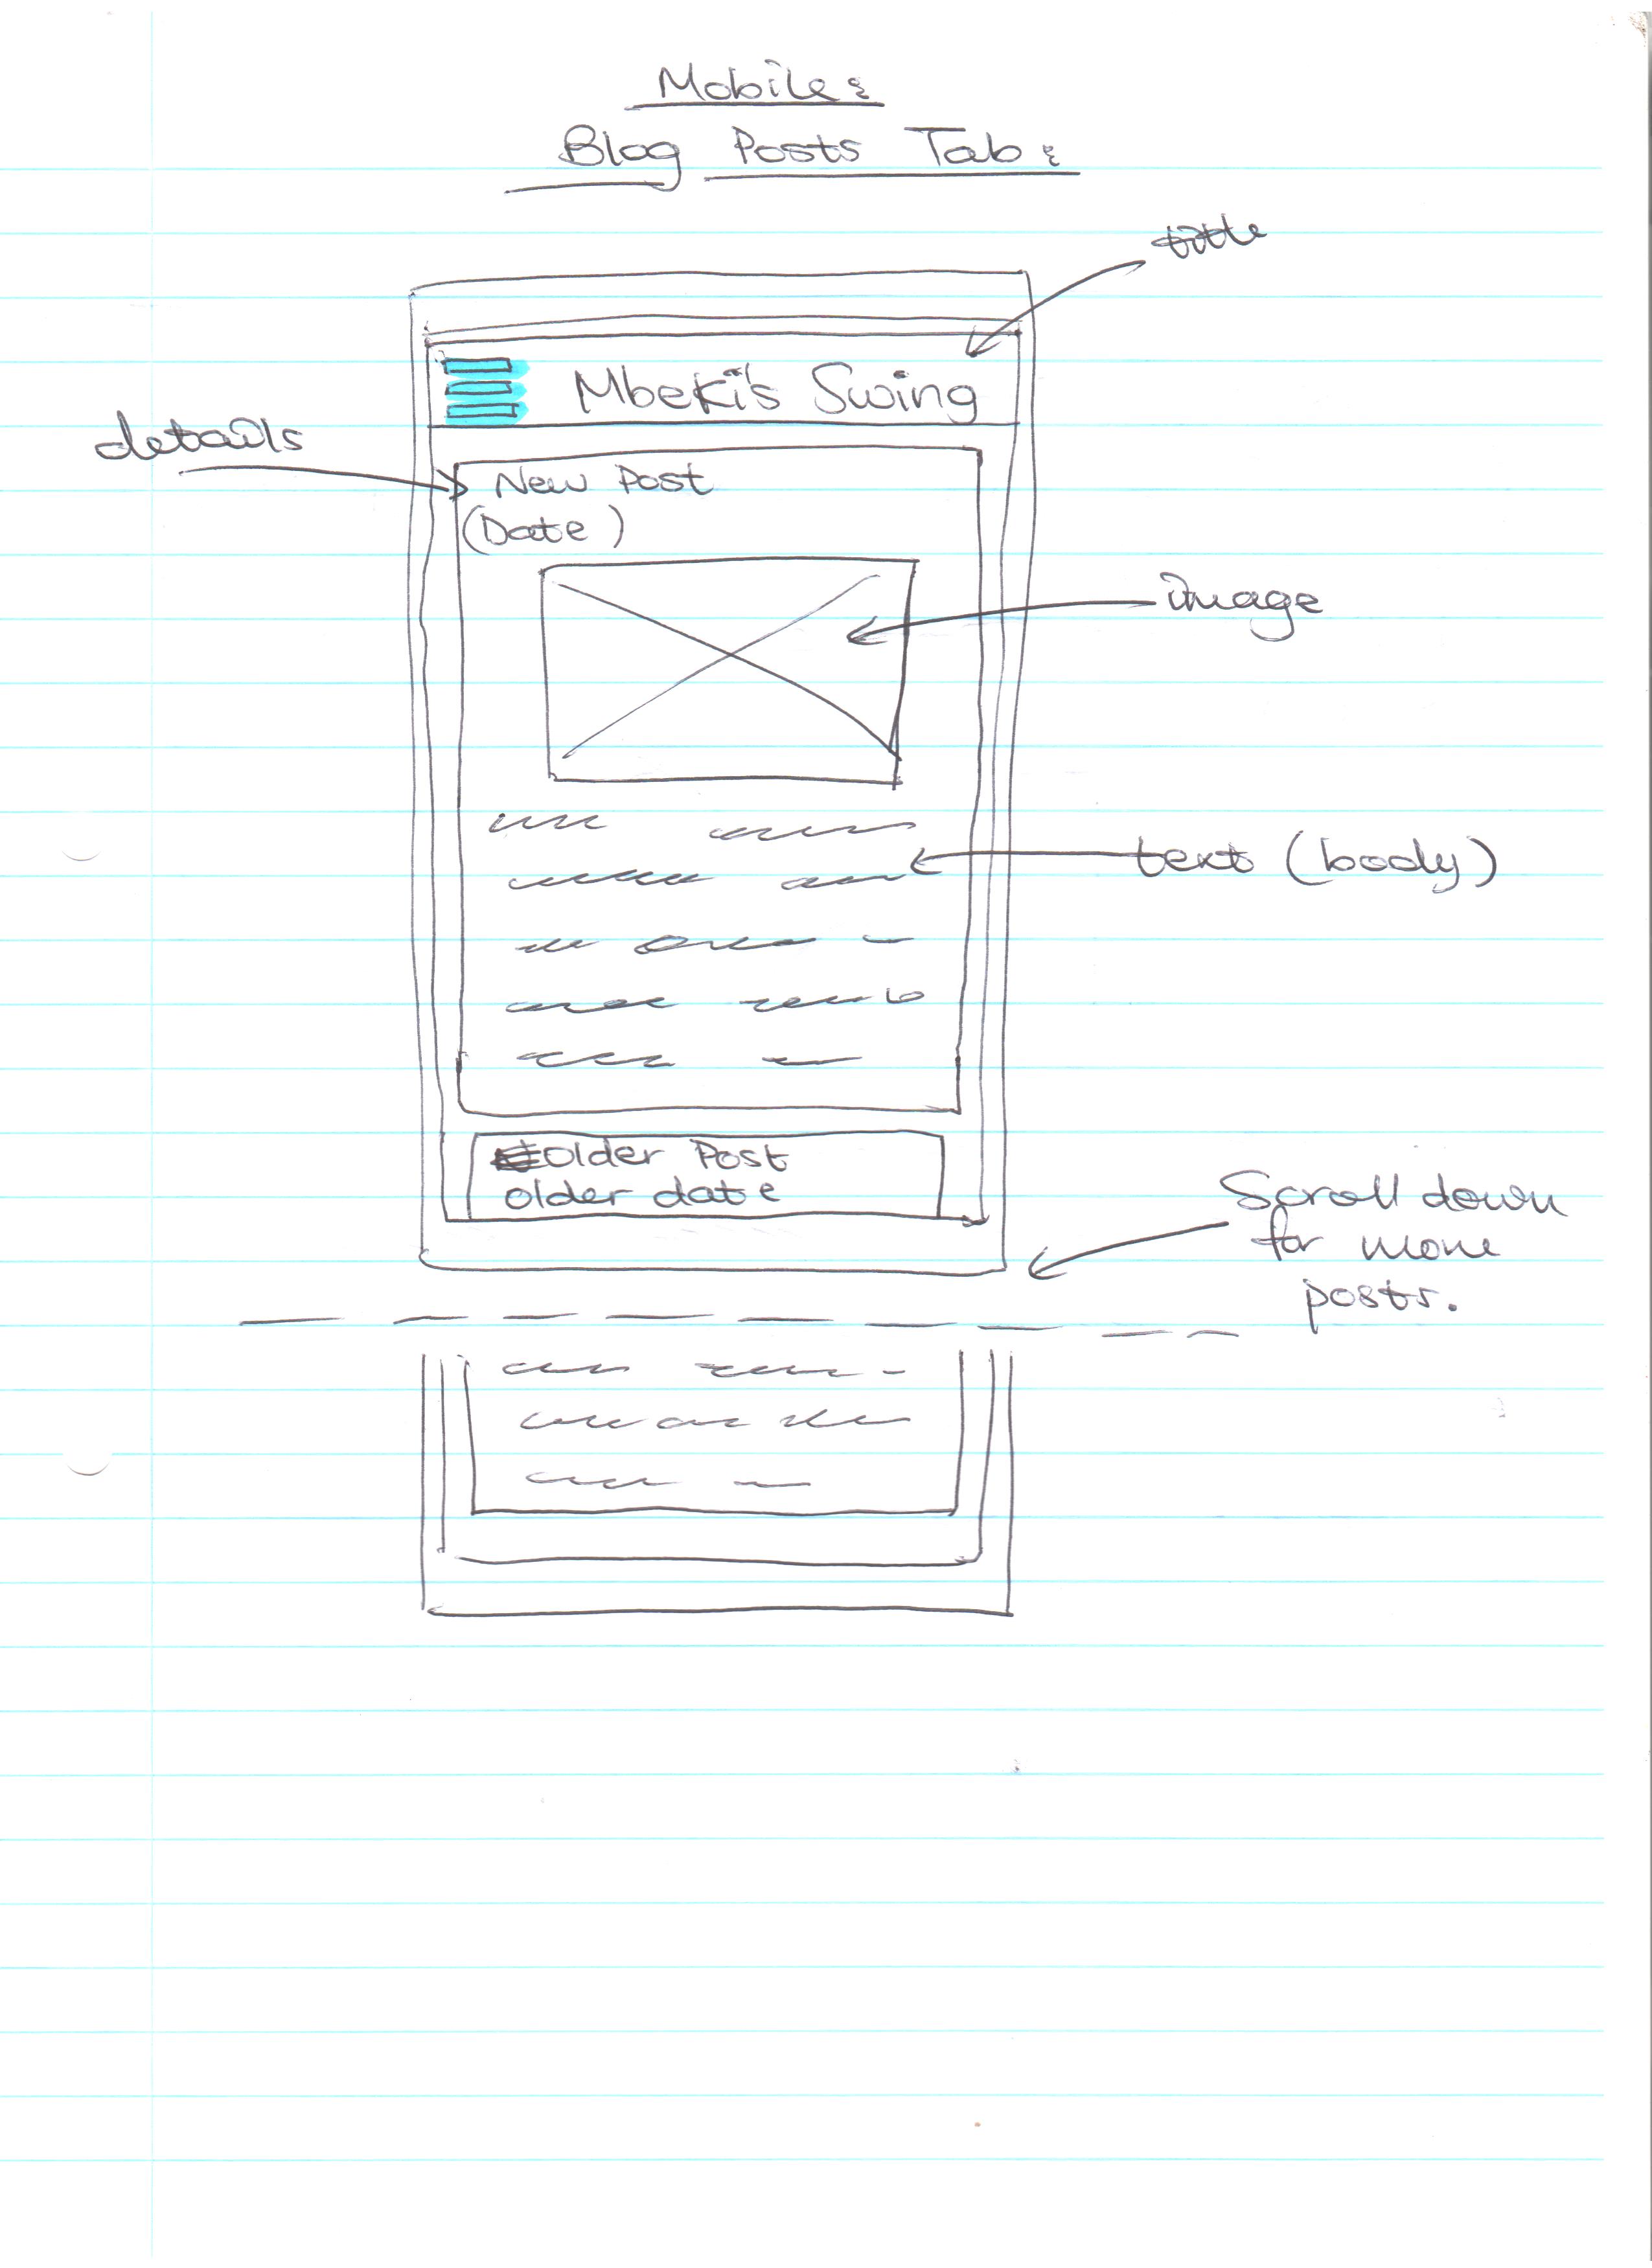 Mobile:
Blog Posts Tab:
title
Mbeki's Swing
details
New Post
(Date)
image
text (body)
older Post
older date
Scroll down
for more
posts.